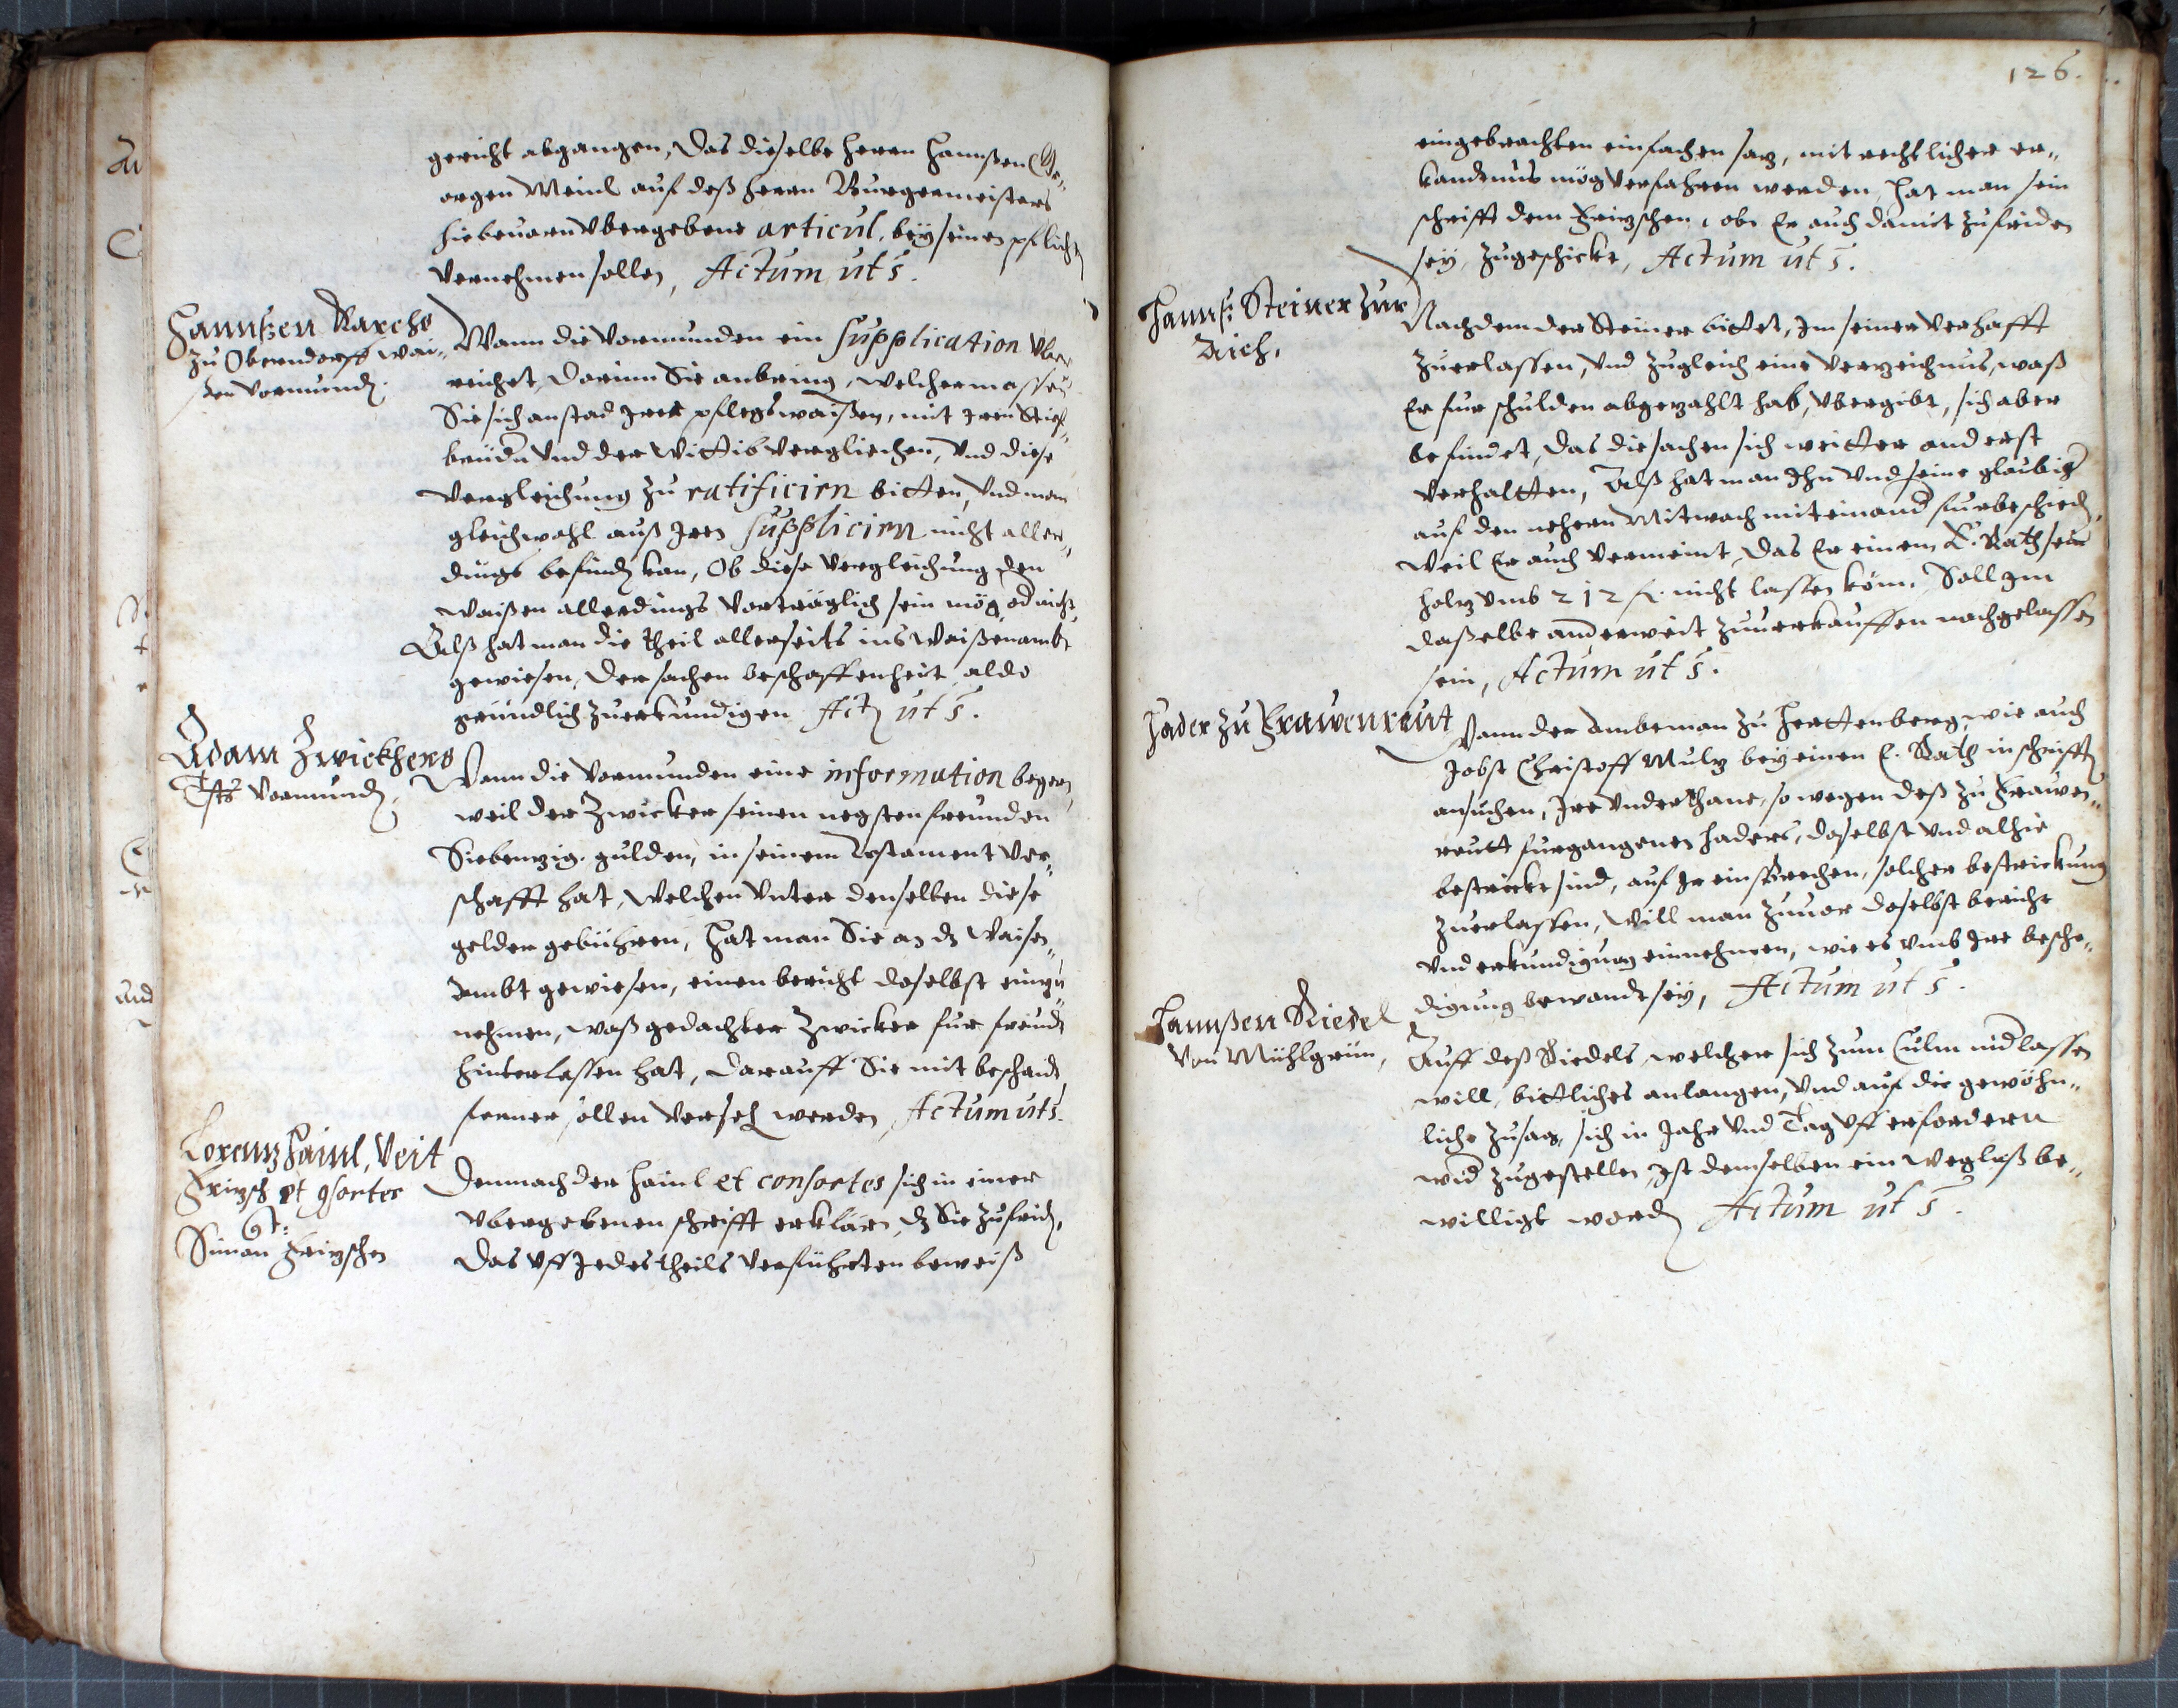 gericht abgangen, Das dieselbe herrn Hannßen Ge„
orgen Meinl auf deß herrn Burgermeisters
hiebeuorn vbergebene articul, bey seinen pflicht
vernehmen sollen, Actum ut s.
Hannßen Karchs
zu Oberndorff wai„
ßen vormund.
Wann die Vormunden ein supplication vber„
reichet, Darinn Sie anbring, welchermassen
Sie sich anstad Irer pflegswaißen, mit Iren Stief„
brüdn vnd der Wittib verglichen, vnd diese
vergleichung zu ratificirn bitten, vnd man
gleichwohl auß Iren supplicirn nicht aller„
dings befinden kan, Ob diese vergleichung den
waißen allerdings vorträglich sein mög, od nicht,
Alß hat man die theil allerseits ins Waißenambt
gewiesen, Der sachen beschaffenheit aldo
gründlich zuerkundigen Act. ut s.
Adam Zwickhers
Tsts vormunden
Wann die Vormunden eine information begern,
weil der Zwicker seinen negsten freunden
Siebenzig gulden, in seinem Testament ver„
schafft hat, Welchen vnter denselben diese
gelder gebühren, Hat man Sie an dz Waisen„
Ambt gewiesen, einen bericht doselbst einzu
nehmen, waß gedachter Zwicker fur freundt
hinterlassen hat, Darauff Sie mit beschaidt
ferner sollen verseh werden, Actum ut s.
Lorenz Hainl, Veit
Fritzsch et consortes
Ct:
Simon Fritzschen
Demnach der Hainl et consortes sich in einer
vbergebenen schrifft erklären, dz Sie zufrieden,
Das vff Jedes theils verführten beweiß
126.
eingebrachten einfachen satz, mit rechtlicher er„
kandtnus mög verfahren werden, Hat man sein
schrifft dem Fritzschen, ob Er auch damit zufriden
sey, zugeschickt, Actum ut s.
Hannß Steiner zur
Aich.
Nachdem der Steiner bittet, Jm seiner verhafft
zuerlassen, vnd zugleich eine verzeichnus, waß
Er fur schulden abgezahlt hab, vbergibt, sich aber
befindet, das die sachen sich weitter anderst
verhaltten, Alß hat man Ihn vnd seine glaubiger
auf den nehern Mitwoch miteinand furbeschieden,
Weil Er auch vermeint, das Er einem E. Rath sein
holz vmb 212 fl. nicht lassen köm, Soll Jm
dasselbe anderweit zuuerkauffen nachgelassen
sein, Actum ut s.
Hader zu Frawenreut
Wann der Ambtman zu Hartenberg, wie auch
Jobst Christoff Mulz bey einem E. Rath in schrifften
ansuchen, Ire vnderthane, so wegen deß zu Frawen„
reutt furgangenen haders, doselbst vnd alhie
bestrickt sind, auf Ir einsprechen, solcher bestrickung
zuerlassen, Will man zuuor doselbst bericht
vnd erkundigung einnehmen, wie es vmb Ire besche„
digung bewandt sey, Actum ut s.
Hannßen Riedel
von Mühlgrün,
Auff deß Riedels, welcher sich zum Culm nid lassen
will, bittliches anlangen, vnd auf die gewöhn„
liche zusag, sich in Jahr vnd Tag vff erfordern
wid zugestellen, Ist demselben ein Weglaß be„
willigt worden Actum ut s.